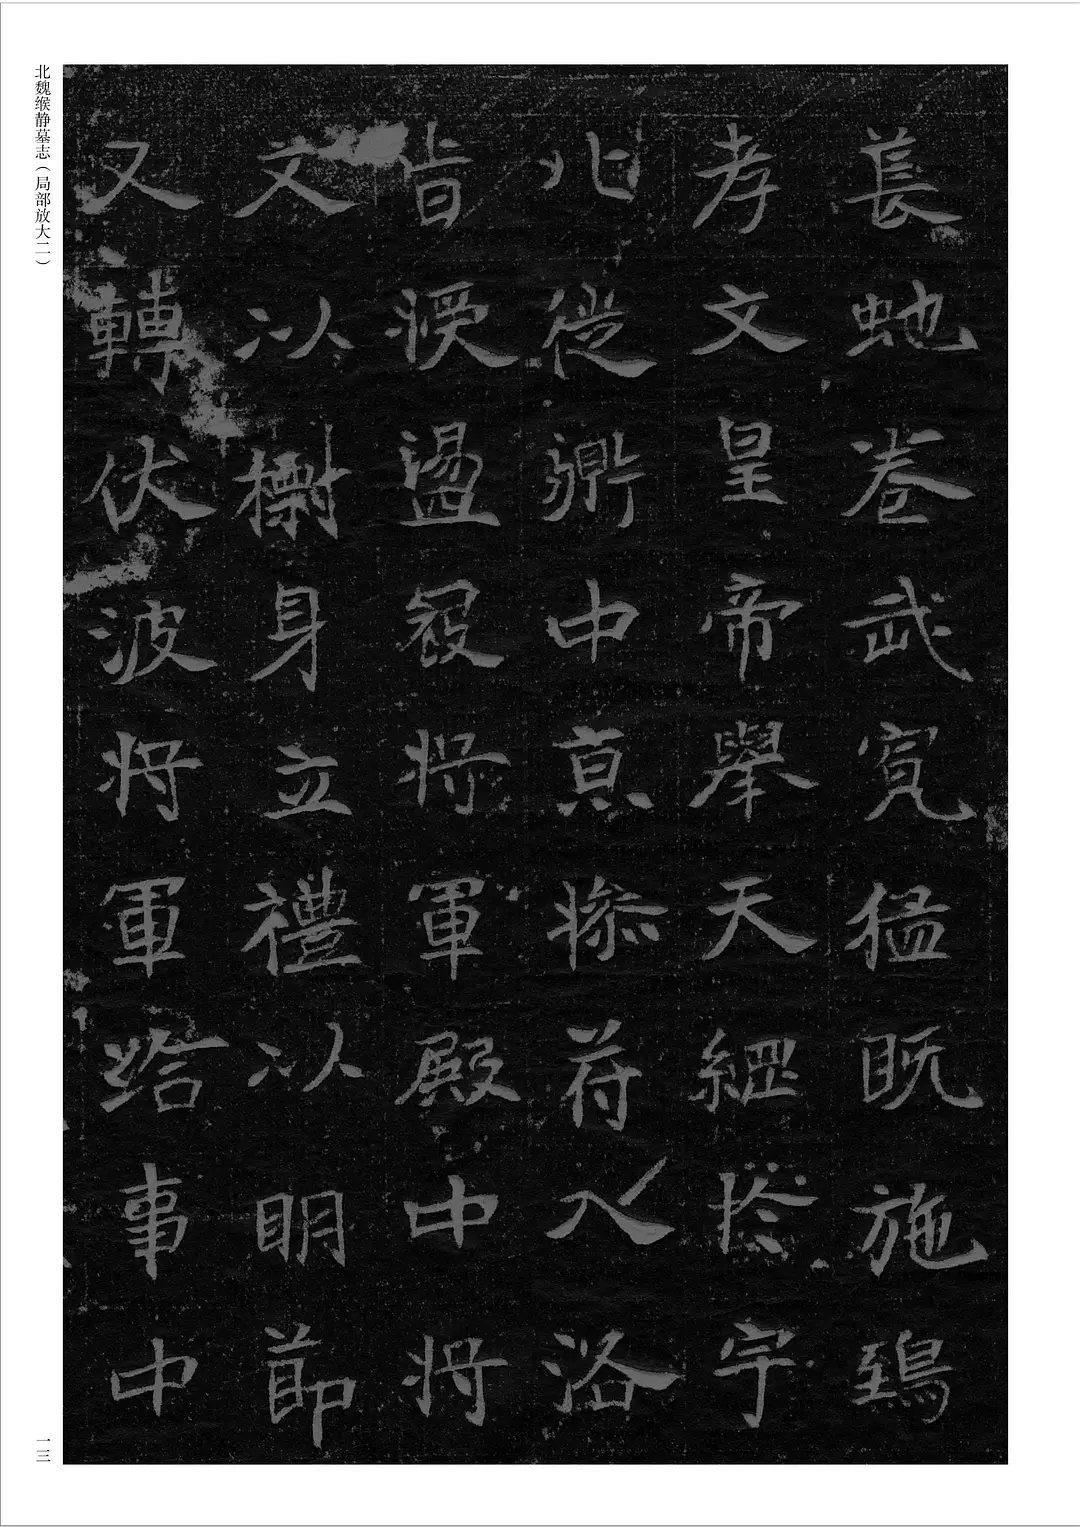 長虵卷武寬猛既施鵄
孝文皇帝舉天綱於宇
北從鼎中京符入洛
旨授盪寇將軍殿中將
文以樹身立禮以明節
又轉伏波將軍給事中
北魏缑静墓志（局部放大二）
一三